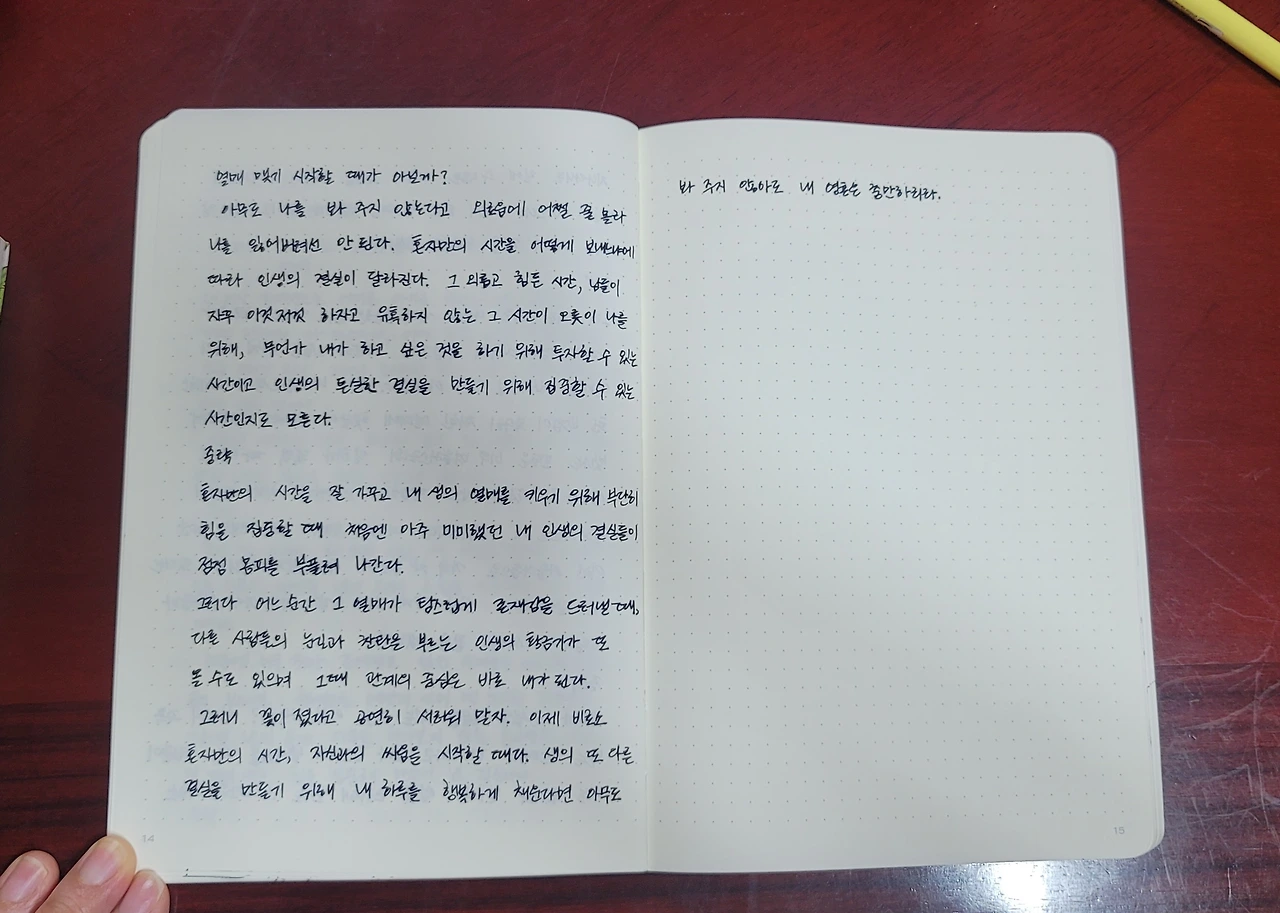 열매 맺기 시작할 때가 아닐까?
아무도 나를 봐 주지 않는다고 외로움에 어쩔 줄 몰라
나를 잃어버려선 안 된다. 혼자만의 시간을 어떻게 보내느냐에
따라 인생의 결실이 달라진다. 그 외롭고 힘든 시간, 남들이
자꾸 이것저것 하자고 유혹하지 않는 그 시간이 오롯이 나를
위해, 무언가 내가 하고 싶은 것을 하기 위해 투자할 수 있는
시간이고 인생의 튼실한 결실을 만들기 위해 집중할 수 있는
시간인지도 모른다.
중략
혼자만의 시간을 잘 가꾸고 내 생의 열매를 키우기 위해 부단히
힘을 집중할 때 처음엔 아주 미미했던 내 인생의 결실들이
점점 몸피를 부풀려 나간다.
그러다 어느 순간 그 열매가 탐스럽게 존재감을 드러낼 때,
다른 사람들의 눈길과 찬탄을 부르는 인생의 황금기가 또
올 수도 있으며 그때 관계의 중심은 바로 내가 된다.
그러니 꽃이 졌다고 공연히 서러워 말자. 이제 비로소
혼자만의 시간, 자신과의 싸움을 시작할 때다. 생의 또 다른
결실을 만들기 위해 내 하루를 행복하게 채운다면 아무도
14
봐 주지 않아도 내 영혼은 충만하리라.
15